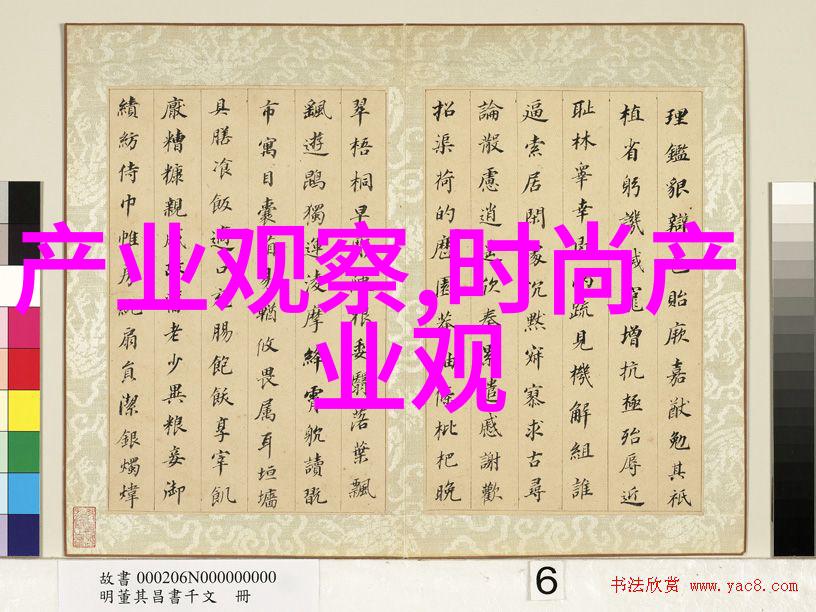 理鑑貌辯色貽厥嘉猷勉其祗
植省躬譏誡寵增抗極殆辱近
耻林睾幸即兩疏見機解組誰
逼索居閑處沉默寂寥求古尋
論散慮逍遙欣奏累遣慼謝歡
招渠荷的歷園莽抽條枇杷晚
翠梧桐早凋陳根委翳落葉飄
飖遊鵾獨運淩摩絳霄躭讀翫
市寓目囊箱易輶攸畏属耳垣墻
具膳飡飯適口充腸飽飫享宰飢
厭糟糠親戚故舊老少異粮妾御
績紡侍巾帷房紈扇員潔銀燭煒
产业观察,时尚产
业观
故書 000206N000000000
明董其昌書千文 冊
6
书法欣赏 www.yac8.com